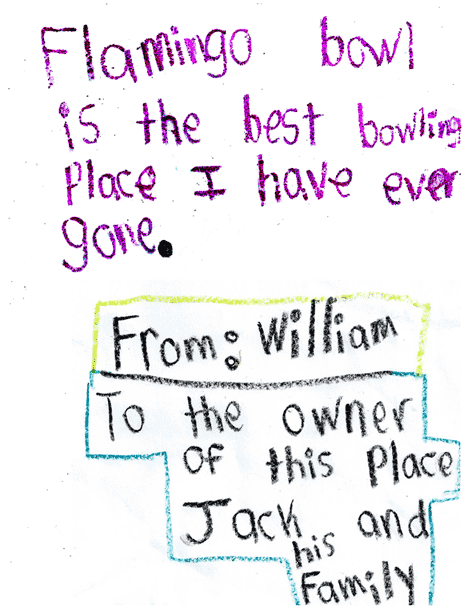 Flamingo bowl
is the best bowling
Place I have ever
gone.
From: William
To the owner
of this Place
Jack and
his
Family